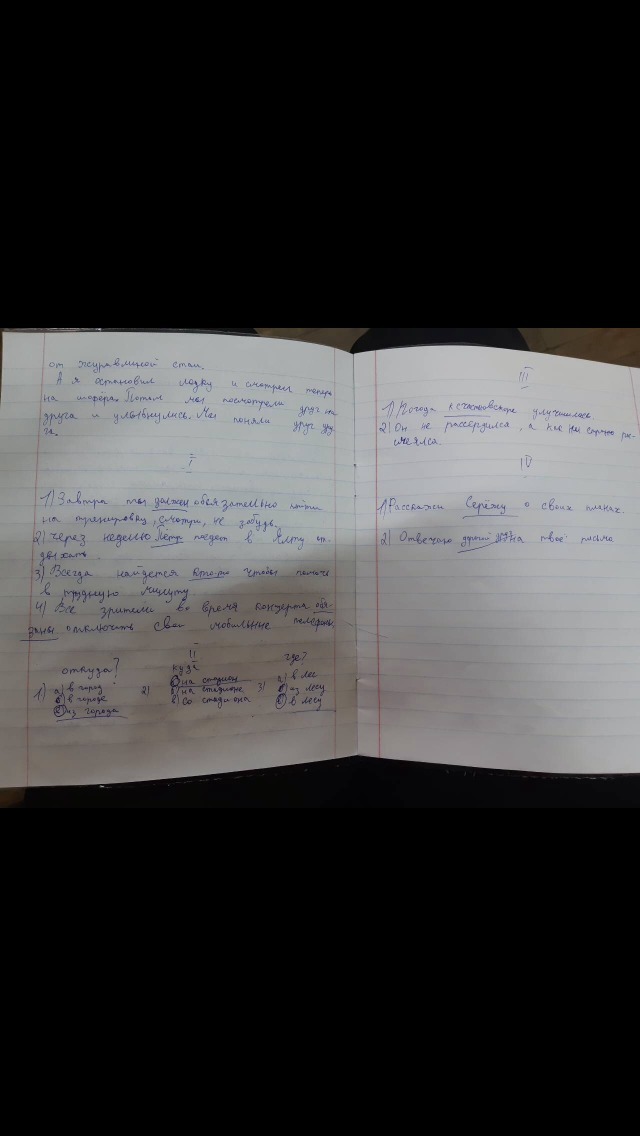 от журавлиной стаи.
А я остановил лодку и смотрел теперь
на шофёра. Потом мы посмотрели друг на
друга и улыбнулись. Мы поняли друг дру-
га.
I
1) Завтра ты должен обязательно пойти
на тренировку, смотри, не забудь.
2) Через неделю Пётр поедет в Ялту от-
дыхать.
3) Всегда найдется кто-то чтобы помочь
в трудную минуту
4) Все зрители во время концерта обя-
заны отключить свои мобильные телефоны
II
откуда? куда где?
1) а) в город 2) а) на стадион 3) а) в лес
б) в городе б) на стадионе б) из лесу
в) из города в) со стадиона в) в лесу
III
1) Погода к счастью улучшилась
2) Он не рассердился, а как рас-
смеялся
IV
1) Расскажи Серёжу о своих планах.
2) Отвечаю на твоё письмо